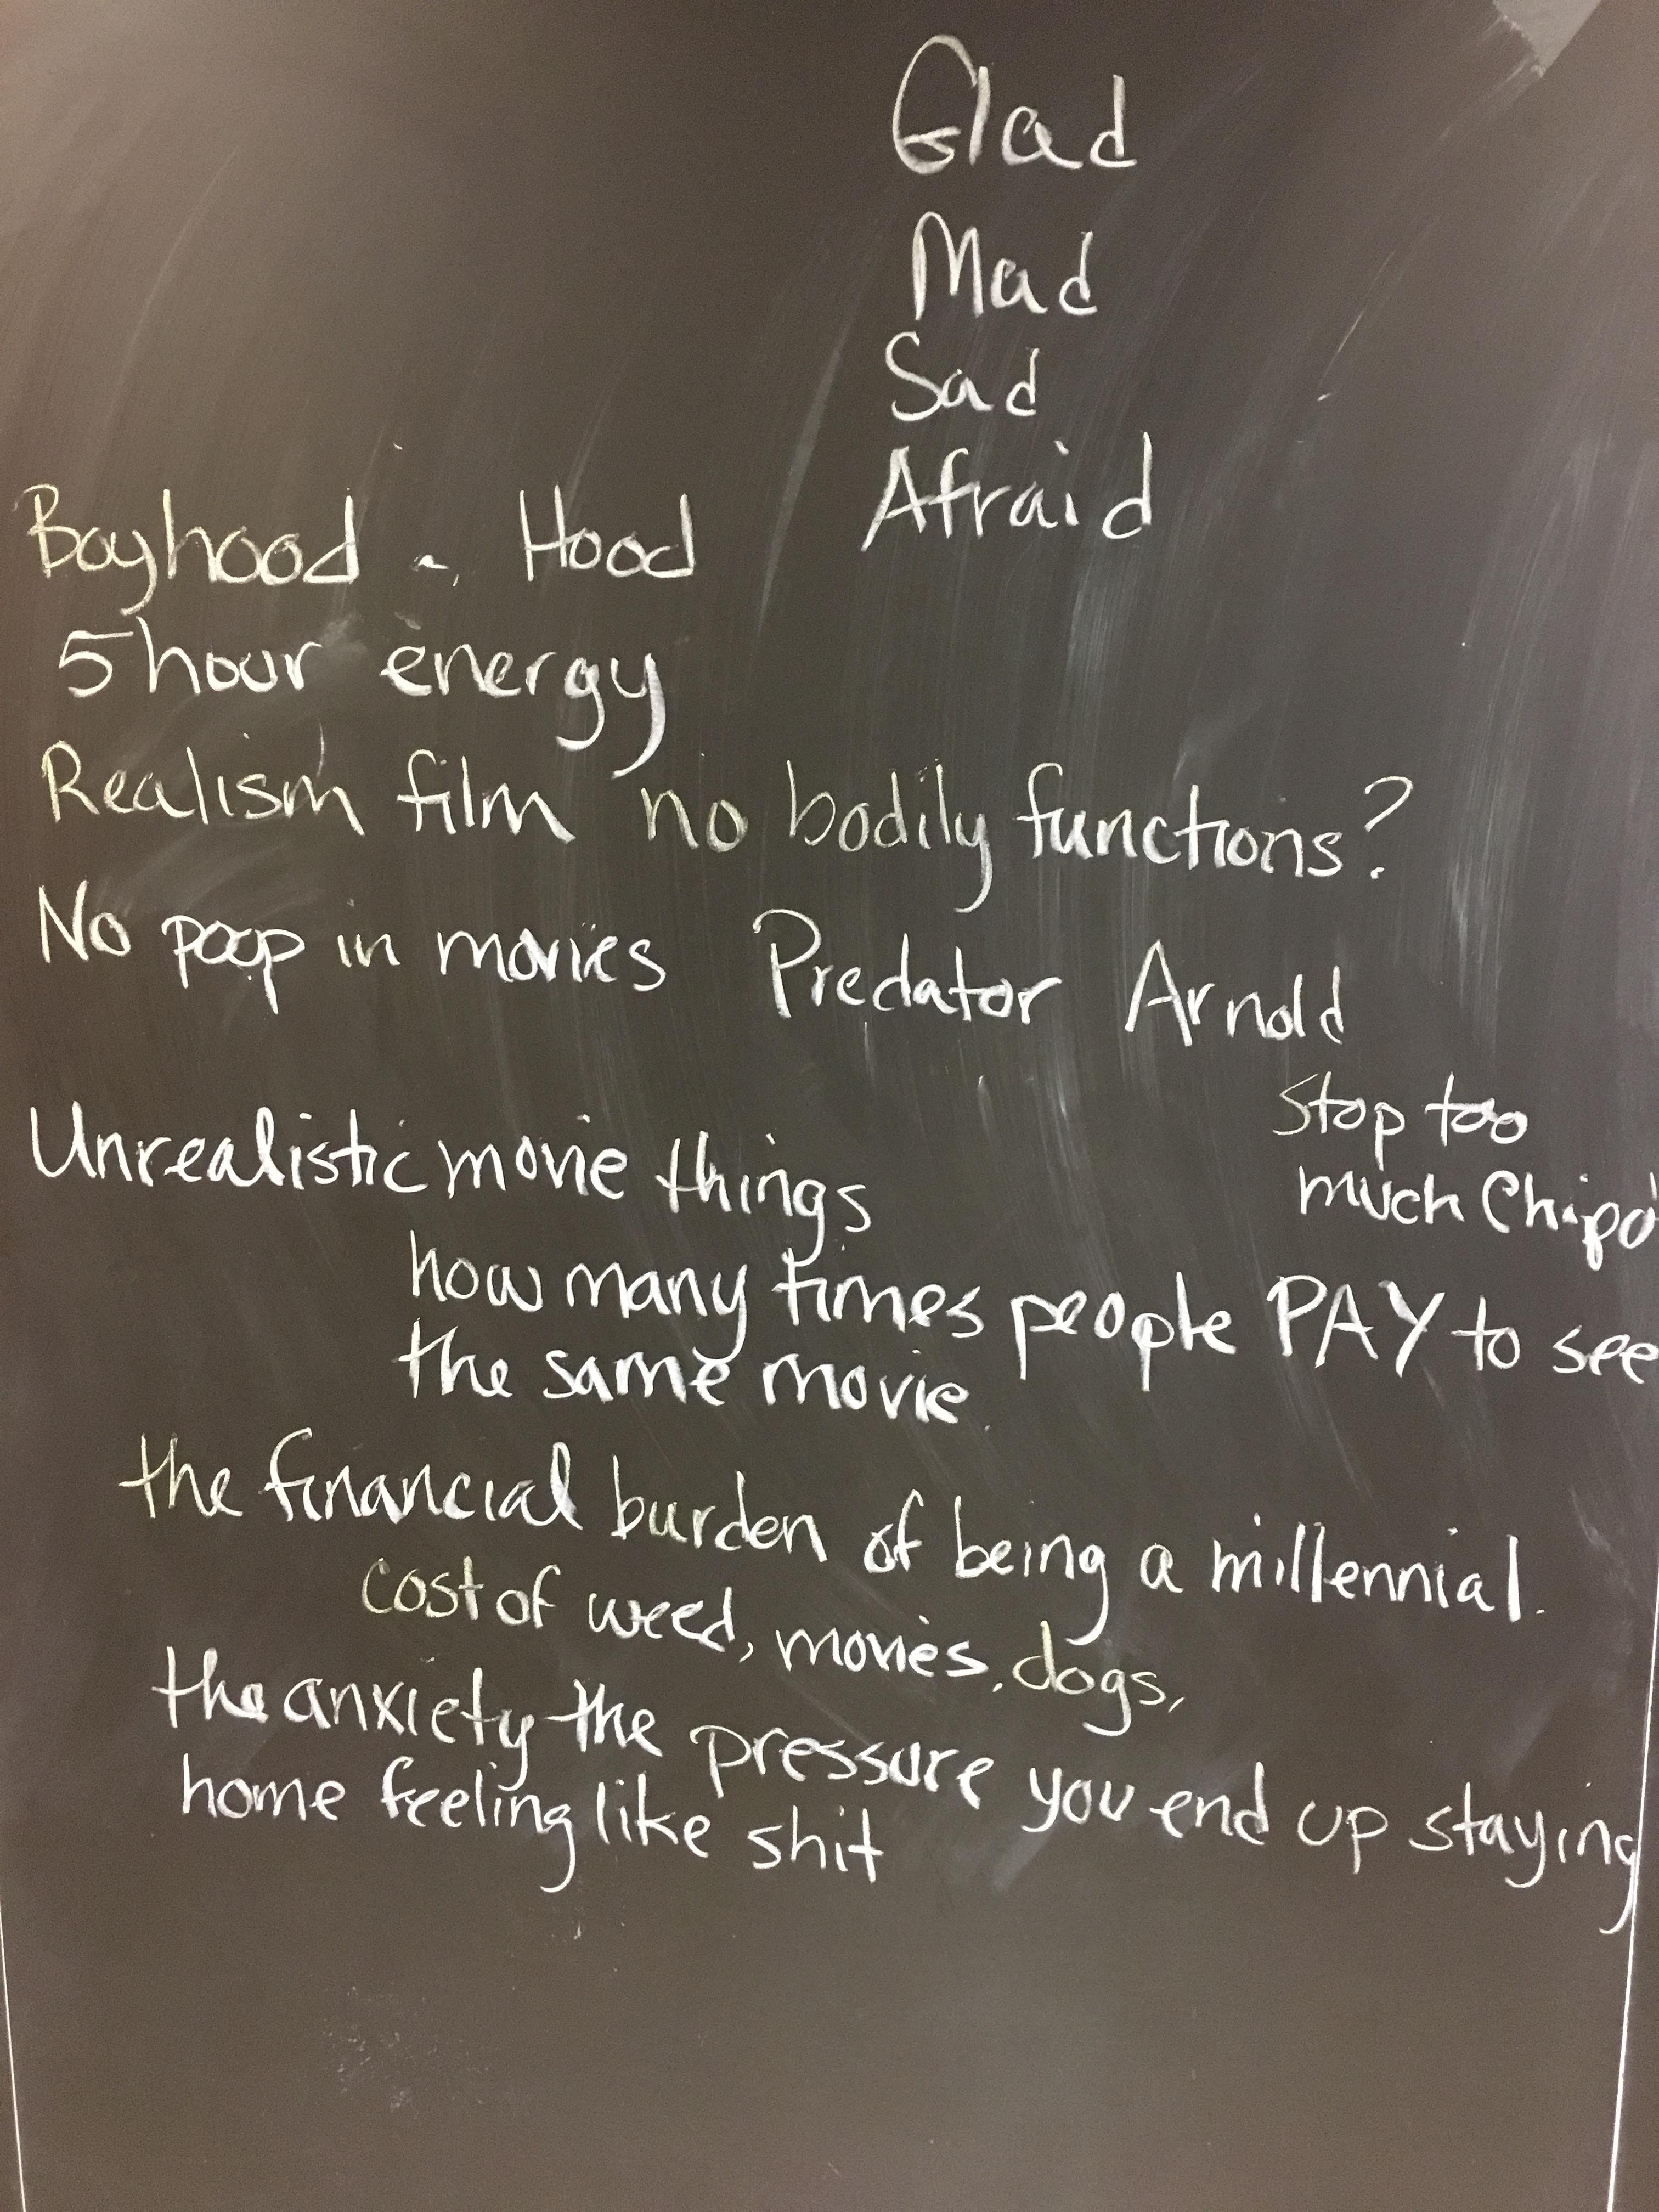 Glad
Mad
Sad
Afraid
Boyhood Hood
5 hour energy
Realism film no bodily functions?
No poop in movies Predator Arnold
Stop too
much Chipo
Unrealistic movie things
how many times people PAY to see
the same movie.
the financial burden of being a millennial.
cost of weed, movies, dogs,
the anxiety the pressure you end up staying
home feeling like shit